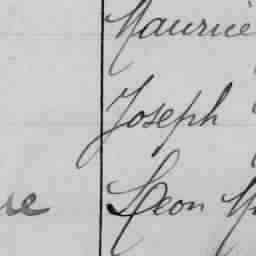 Maurice
Joseph
Leon